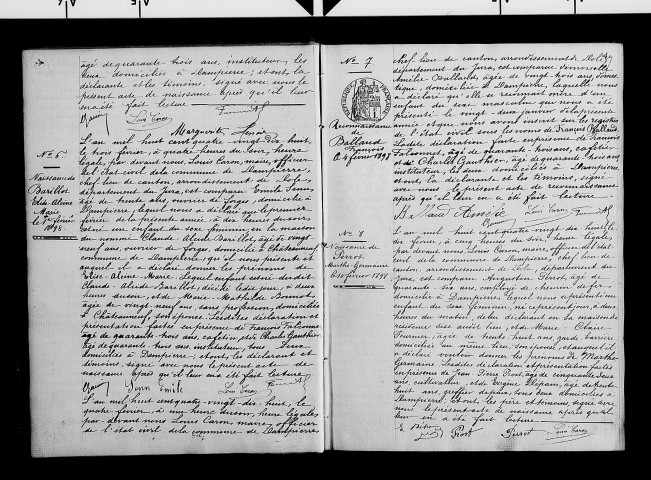 âgé de quarante trois ans, instituteur, les
deux domiciliés à Dampierre; et ont, la
déclarante et les témoins, signé avec nous le
présent acte de naissance après qu'il leur
en a été fait lecture
Marguerite Lenoir
N° 6
Naissance de
Barillot
Elie Aline
Marie
le 1er Février
1898
L'an mil huit cent quatre vingt dix huit,
le trois février, à quatre heures du soir, heure
légale, par devant nous, Louis Caron, maire, officier
de l'état civil de la commune de Dampierre,
chef lieu de canton, arrondissement de Dole,
département du Jura, est comparu Emile
âgé de trente ans, ouvrier de forges, domicilié à
Dampierre, lequel nous a déclaré que le premier
février de la présente année, à dix heures du soir,
est né un enfant du sexe féminin, en la maison
du nommé Claude Barillot, âgé de vingt
neuf ans, ouvrier de forges, domicilié à Châteauneuf,
commune de Dampierre; qu'il nous présente et
auquel il a déclaré donner les prénoms de
Elie Aline Marie. Lequel enfant est né dudit
Claude Barillot, décédé ledit jour, à deux
heures du soir, et de Marie Mathilde
âgée de vingt neuf ans, sans profession, domiciliée
à Châteauneuf, son épouse. Lesdites déclaration et
présentation faites en présence de François Falconnet,
âgé de quarante trois ans, cafetier, et de Charles Gauthier,
âgé de quarante trois ans, instituteur, les deux
domiciliés à Dampierre; et ont, les déclarant et
témoins, signé avec nous le présent acte de
naissance après qu'il leur en a été fait lecture
Emile
L'an mil huit cent quatre vingt dix huit, le
quatre février, à une heure du soir, heure légale,
par devant nous Louis Caron, maire, officier
de l'état civil de la commune de Dampierre
N° 7
Reconnaissance
de
Balland
François
le 4 février 1898
chef lieu de canton, arrondissement de Dole,
département du Jura, est comparue demoiselle
Amélie Balland, âgée de vingt trois ans, domes
tique, domiciliée à Dampierre, laquelle nous
a déclaré qu'elle se reconnait mère d'un
enfant du sexe masculin qui nous a été
présenté le vingt deux janvier de la présente
année et que nous avons inscrit sur les registres
de l'état civil sous les noms de François Balland.
Ladite déclaration faite en présence de François
Falconnet, âgé de quarante trois ans, cafetier
et de Charles Gauthier, âgé de quarante trois ans,
instituteur, les deux domiciliés à Dampierre,
et ont, la déclarante et les témoins, signé
avec nous le présent acte de reconnaissance
après qu'il leur en a été fait lecture
N° 8
Naissance de
Perrot
Marthe Germaine
le 10 février 1898
L'an mil huit cent quatre vingt dix huit, le
dix février, à cinq heures du soir, heure légale,
par devant nous Louis Caron, maire, officier de l'état civil
de la commune de Dampierre, chef lieu de
canton, arrondissement de Dole, département du
Jura, est comparu Augustin Perrot, âgé de
quarante six ans, employé de chemin de fer,
domicilié à Dampierre, lequel nous a présenté un
enfant du sexe féminin, né ce présent jour, à deux
heures du matin, de lui déclarant en la maison de
résidence sise audit lieu, et de Marie Claire
Fournier, âgée de trente huit ans, garde barrière
domiciliée au même lieu, son épouse, et auquel il
a déclaré vouloir donner les prénoms de Marthe
Germaine. Lesdites déclaration et présentation faites
en présence de Jean Pierre Piot, âgé de cinquante
ans, cultivateur, et de Virgile âgé de trente
huit ans, greffier de paix, tous deux domiciliés à
Dampierre; et ont, les père et témoins, signé avec
nous le présent acte de naissance après qu'il
leur en a été fait lecture
Piot Perrot Louis Caron